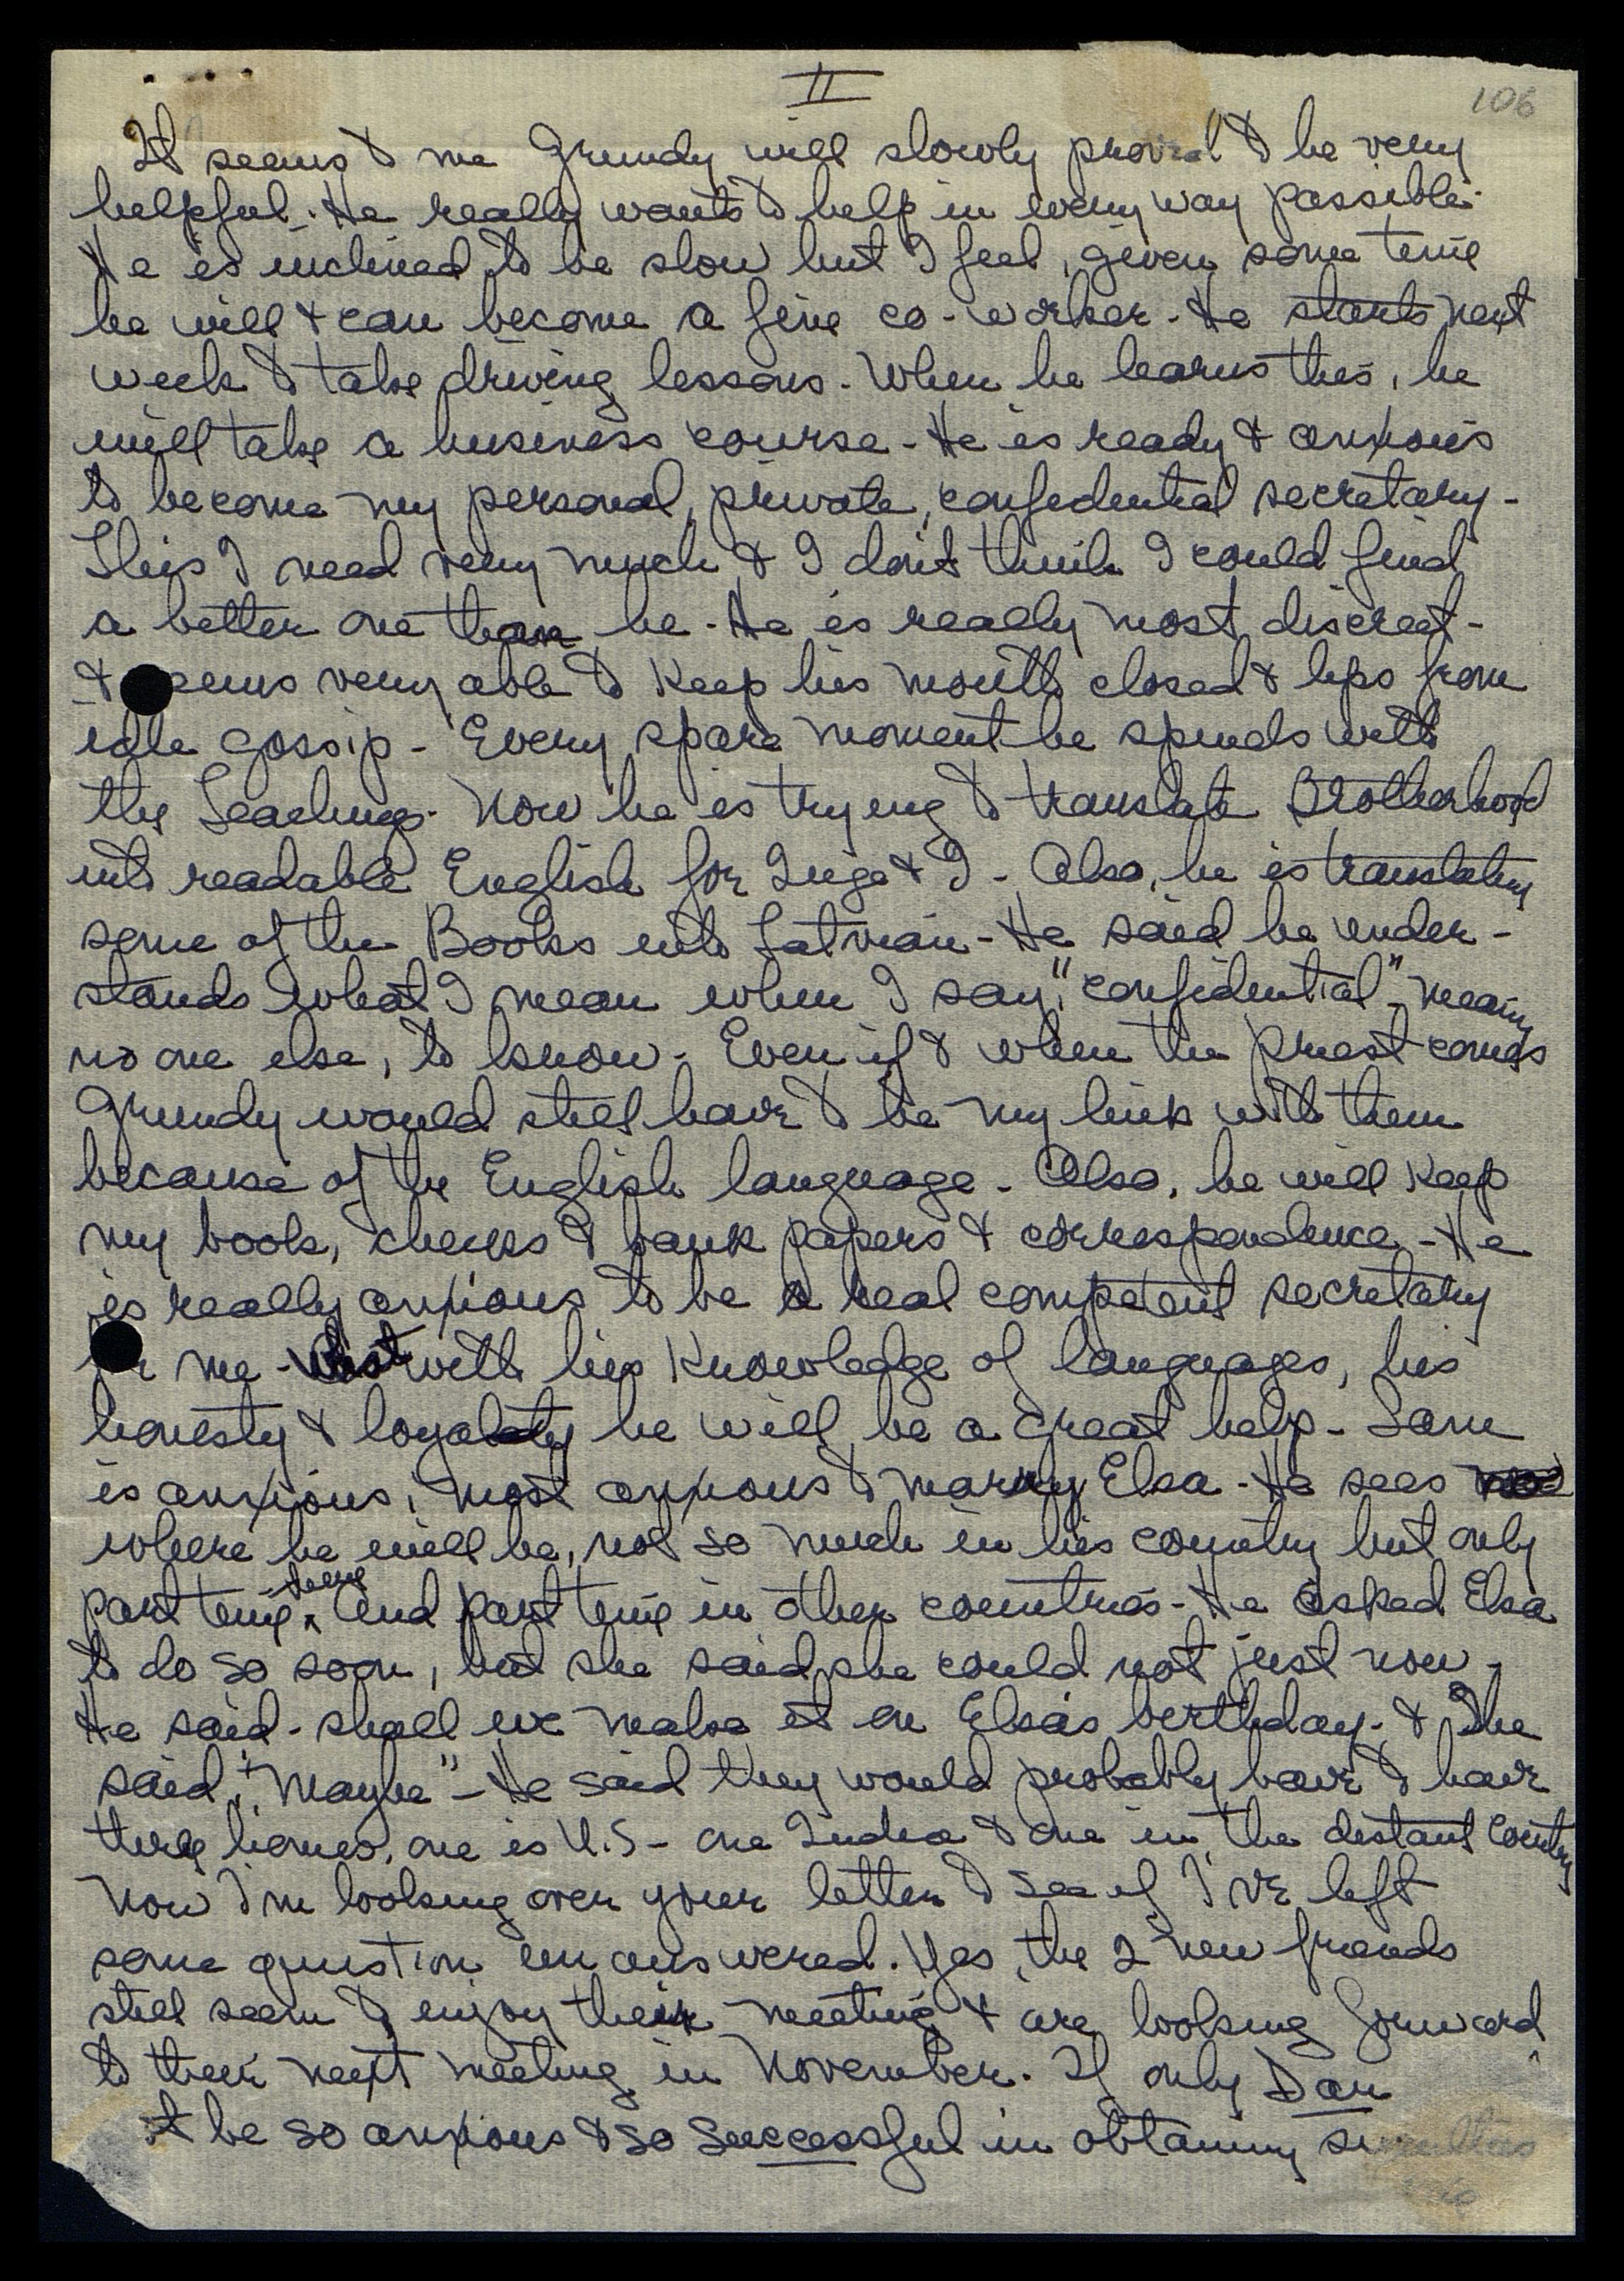 II
106
It seems to me Grundy will slowly proved to be very
helpful. He really wants to help in every way possible.
He is inclined to be slow but I feel, given some time
he will & can become a fine co-worker - He starts next
week to take driving lessons. When he learns this, he
will take a business course - He is ready & anxious
to become my personal, private, confidential secretary -
This I need very much & I don't think I could find
a better one than he - He is really most discreet -
& seems very able to keep his mouth closed & lips from
idle gossip - Every spare moment he spends with
the Teachings. Now he is trying to translate Brotherhood
into readable English for Inge & I - Also, he is translating
some of the Books into Latvian - He said he under-
stands what I mean when I say, "confidential" - meaning
no one else, to know. Even if & when the priest comes
Grundy would still have to be my link with them
because of the English language - Also, he will keep
my book, checks & bank papers & correspondence - He
is really anxious to be a real competent secretary
me - with his knowledge of languages, his
honesty & loyalty he will be a great help - Sam
is anxious, most anxious to marry Elsa - He sees
where he will be, not so much in his country but only
part time, there and part time in other countries - He asked Elsa
to do so soon, but she said she could not just now -
He said - shall we make it on Elsa's birthday - & she
said, "Maybe" - He said they would probably have to have
three homes, one is U.S - one India & one in the distant country
Now I'm looking over your letter to see if I've left
some question unanswered. Yes, the 2 new friends
still seem to enjoy their meeting & are looking forward
to their next meeting in November. If only Dan
be so anxious & so successful in obtaining